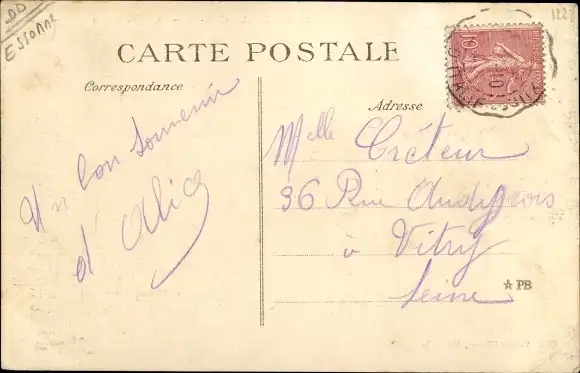 DD
Essonne
1228
CARTE POSTALE
Correspondance
Adresse
10
Un bon souvenir
d'Alice
Melle Créteur
36 Rue Audigeois
à Vitry
Seine
★ PB